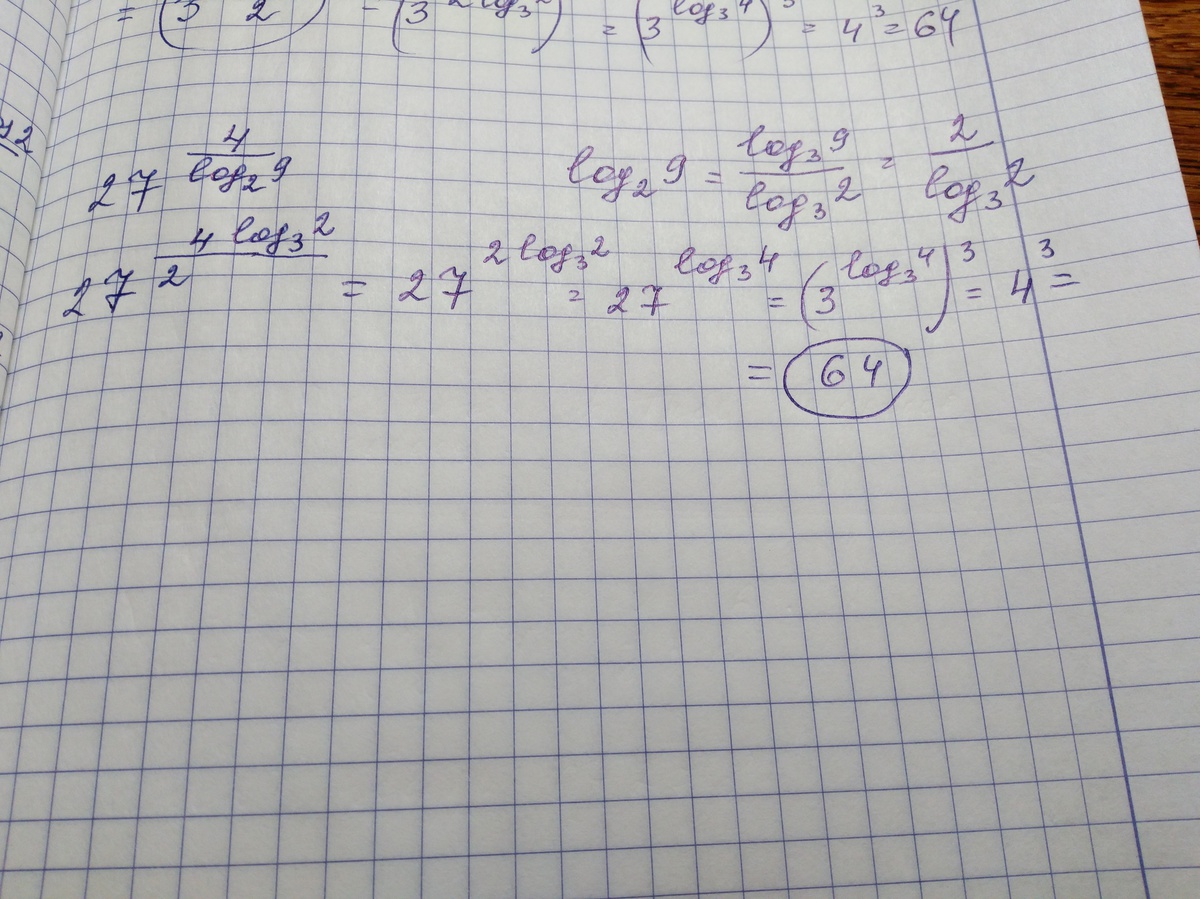 = (3 2) = (3^{2 log_3 2}) = (3^{log_3 4})^3 = 4^3 = 64
27^{\frac{4}{log_2 9}} log_2 9 = \frac{log_3 9}{log_3 2} = \frac{2}{log_3 2}
27^{\frac{4 log_3 2}{2}} = 27^{2 log_3 2} = 27^{log_3 4} = (3^{log_3 4})^3 = 4^3 =
= 64